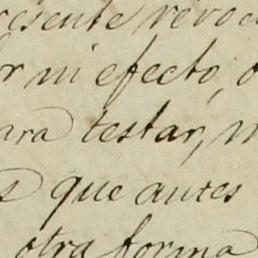 resente revoc
or ni efecto, o
ara testar, m
s que antes
otra forma